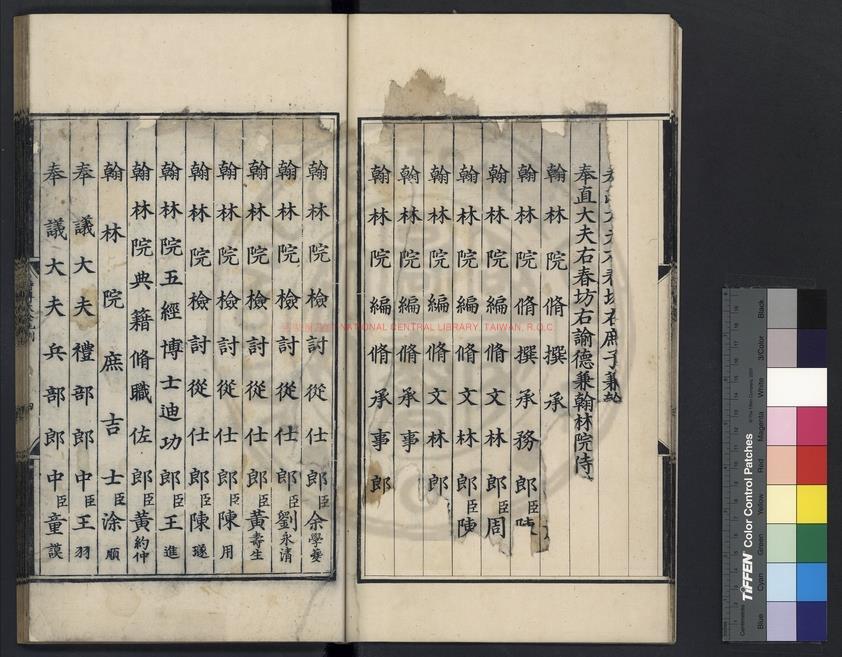 夫右春坊右庶子兼翰
奉直大夫右春坊右諭德兼翰林院侍
翰林院脩撰承
翰林院脩撰承務郎臣
翰林院編脩文林郎臣周
翰林院編脩文林郎臣陳
翰林院編脩文林郎
翰林院編脩承事
翰林院編脩承事郎
翰林院檢討從仕郎臣余學夔
翰林院檢討從仕郎臣劉永清
翰林院檢討從仕郎臣黃壽生
翰林院檢討從仕郎臣陳用
翰林院檢討從仕郎臣陳璲
翰林院五經博士迪功郎臣王進
翰林院典籍脩職佐郎臣黃約仲
翰林院庶吉士臣涂順
奉議大夫禮部郎中臣王羽
奉議大夫兵部郎中臣童謨
NATIONAL CENTRAL LIBRARY, TAIWAN, R.O.C
TIFFEN Color Control Patches
Blue
Cyan
Green
Yellow
Red
Magenta
White
3/Color
Black